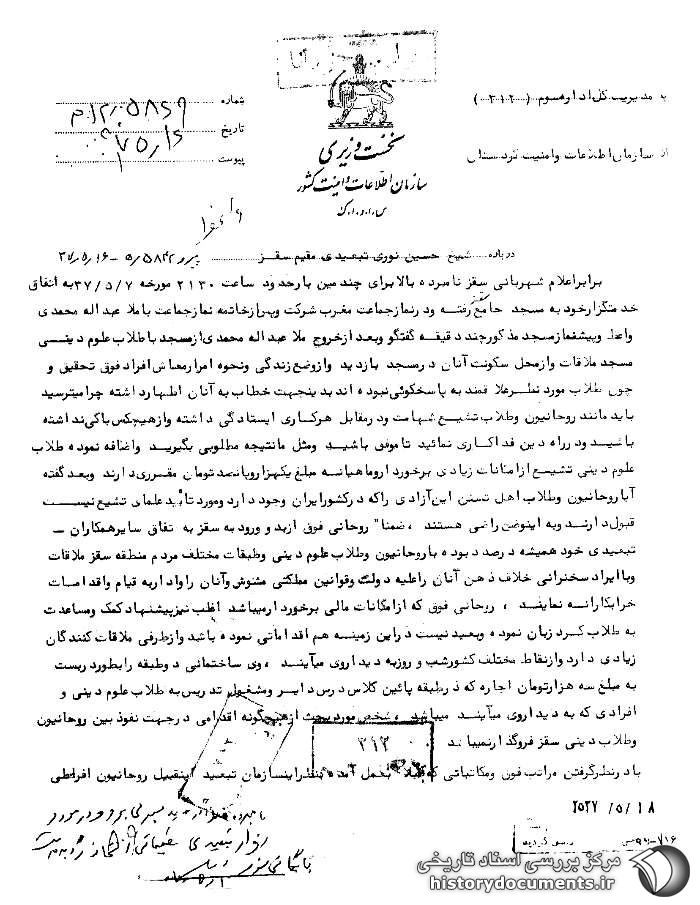 به مدیریت کل اداره سوم (۳۱۲)
از سازمان اطلاعات وامنیت کردستان
نخست وزیری
سازمان اطلاعات و امنیت کشور
س.ا.و.ا.ک
شماره
تاریخ
پیوست
درباره شیخ حسین نوری تبعیدی مقیم سقز
پیرو ۵۸۴۲/ه - ۳۷/۵/۱۶
برابراعلام شهربانی سقز نامبرده بالا برای چندمین بارحدود ساعت ۲۱۳۰ مورخه ۳۷/۵/۷ به اتفاق
خدمتگزارخود به مسجد جامع سقز رفته ودرنمازجماعت مغرب شرکت وپس ازخاتمه نمازجماعت با ملا عبداله محمدی
واعظ وپیشنماز مسجد مذکورچند دقیقه گفتگو وبعد ازخروج ملا عبداله محمدی ازمسجد با طلاب علوم دینی
مسجد ملاقات وازمحل سکونت آنان درمسجد بازدید وازوضع زندگی ونحوه امرارمعاش افراد فوق تحقیق و
چون طلاب مورد نظر علاقمند به پاسخگوئی نبوده اند بدینجهت خطاب به آنان اظهارداشته چرا میترسید
باید مانند روحانیون وطلاب تشیع شهامت ودرمقابل هرکاری ایستادگی داشته وازهیچکس باکی نداشته
باشید ودر راه دین فداکاری نمائید تا موفق باشید ومثل ما نتیجه مطلوبی بگیرید واضافه نموده طلاب
علوم دینی تشیع ازامکانات زیادی برخوردار وماهیانه مبلغ یکهزاروپانصد تومان مقرری دارند وبعد گفته
آیا روحانیون وطلاب اهل تسنن این آزادی راکه درکشورایران وجود دارد ومورد تأیید علمای تشیع نیست
قبول دارند وبه اینوضع راضی هستند ، ضمنا" روحانی فوق ازبدو ورود به سقز به اتفاق سایرهمکاران -
تبعیدی خود همیشه درصدد بوده با روحانیون وطلاب علوم دینی وطبقات مختلف مردم منطقه سقز ملاقات
وبا ایراد سخنرانی خلاف ذهن آنان راعلیه دولت وقوانین مملکتی مشوش وآنان را وادار به قیام واقدامات
خرابکارانه نمایند ، روحانی فوق که ازامکانات مالی برخوردارمیباشد اغلب نیزپیشنهاد کمک ومساعدت
به طلاب کرد زبان نموده وبعید نیست دراین زمینه هم اقداماتی نموده باشد وازطرفی ملاقات کنندگان
زیادی دارد وازنقاط مختلف کشورشب و روزبه دیداروی میآیند ، وی ساختمانی دوطبقه رابطوردربست
به مبلغ سه هزارتومان اجاره که درطبقه پائین کلاس درس دایر ومشغول تدریس به طلاب علوم دینی و
افرادی که به دیداروی میآیند میباشد ، شخص مورد بحث ازهیچگونه اقدامی درجهت نفوذ بین روحانیون
وطلاب دینی سقز فروگذارنمیباشد
۳۱۲
با درنظرگرفتن مراتب فوق ومکاتباتی که قبلا بعمل آمده بنظراینسازمان تبعید اینقبیل روحانیون افراطی
۲۵۳۷/۵/۱۸
مرکز بررسی اسناد تاریخی
historydocuments.ir